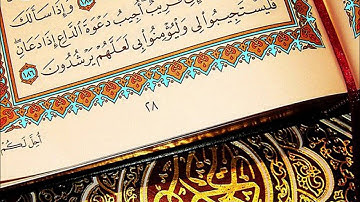 وَإِذَا سَأَلَكَ
قَرِيبٌ أُجِيبُ دَعْوَةَ الدَّاعِ إِذَا دَعَانِ ۖ
فَلْيَسْتَجِيبُوا۟ لِى وَلْيُؤْمِنُوا۟ بِى لَعَلَّهُمْ يَرْشُدُونَ ١٨٦
٢٨
أُحِلَّ لَكُمْ